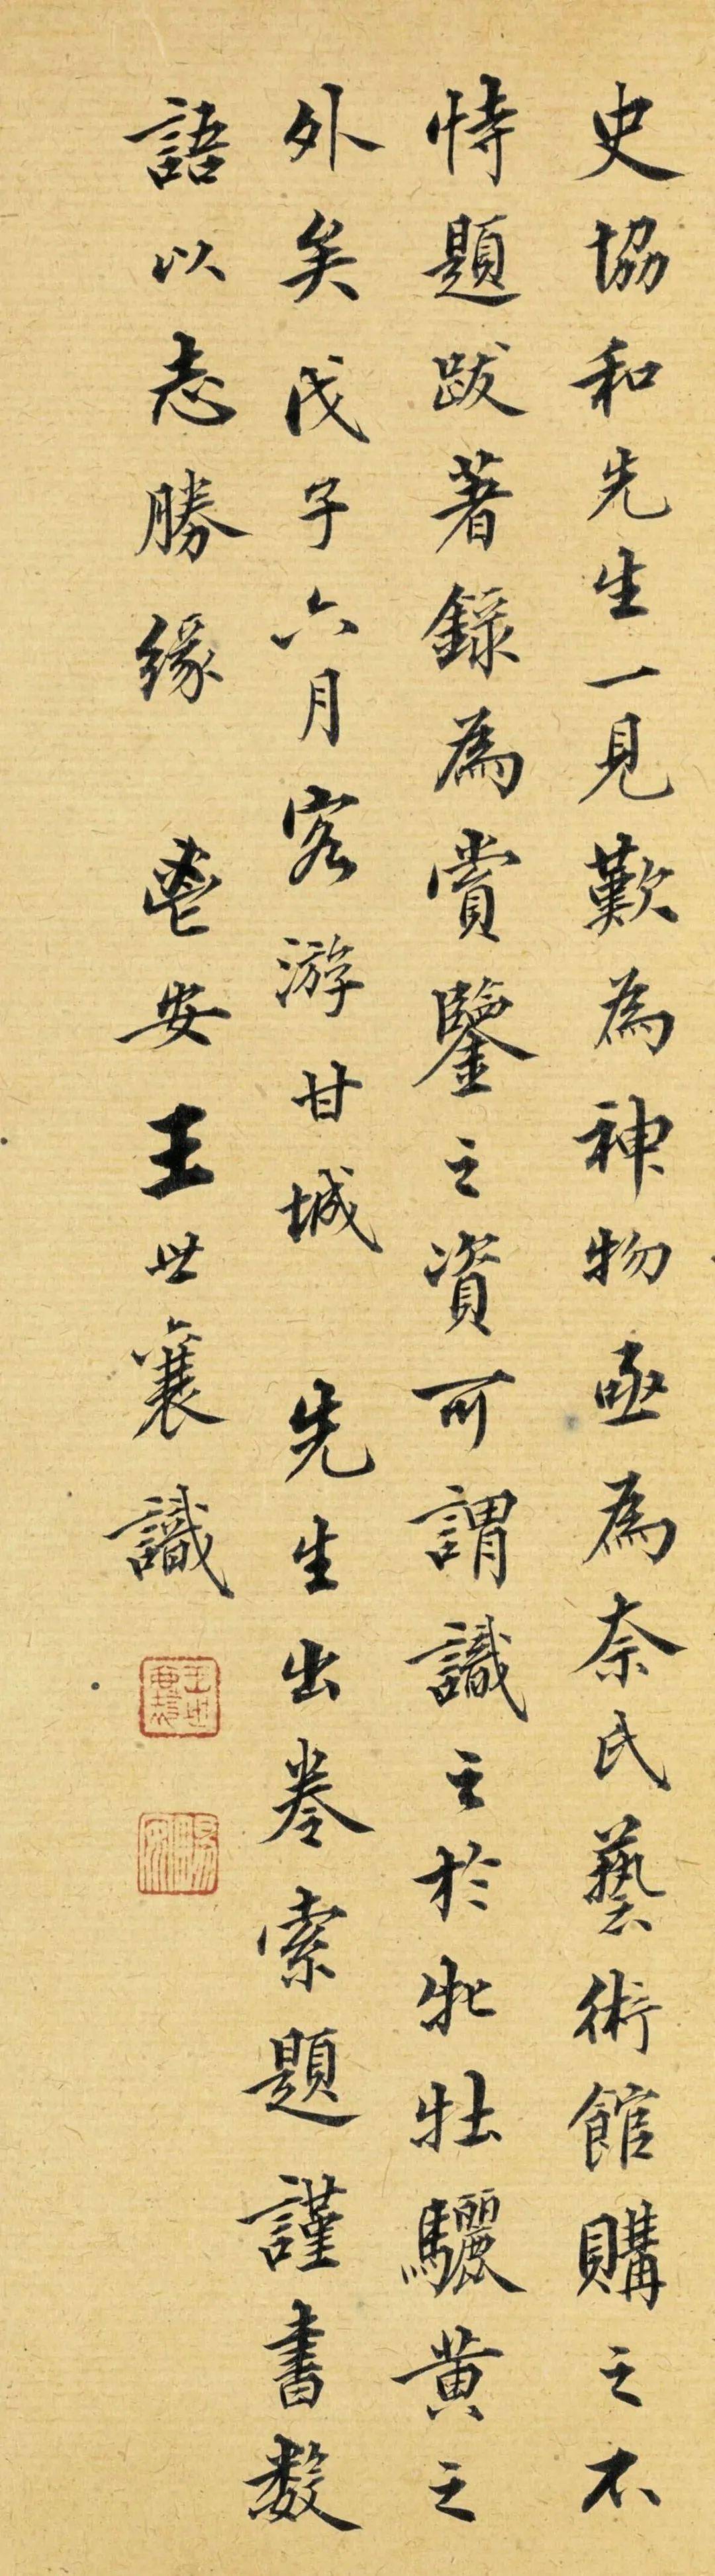 史協和先生一見歎為神物亟為奈氏藝術館購之不
恃題跋著錄為賞鑒之資可謂識之於牝牡驪黃之
外矣戊子六月客游甘城 先生出卷索題謹書數
語以志勝緣 鬯安王世襄識